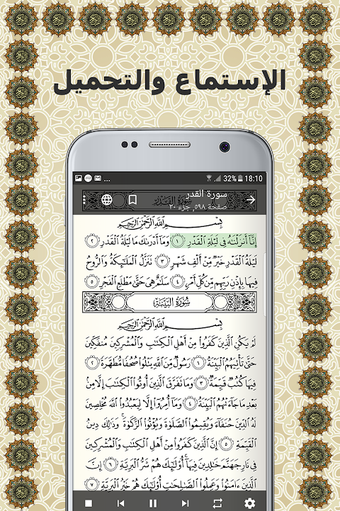 الإستماع والتحميل
32% 18:10
سورة القدر
صفحة ٥٩٨, جزء ٣٠
بِسْمِ اللَّهِ الرَّحْمَٰنِ الرَّحِيمِ
إِنَّا أَنزَلْنَاهُ فِي لَيْلَةِ الْقَدْرِ ١ وَمَا أَدْرَاكَ مَا لَيْلَةُ الْقَدْرِ ٢
لَيْلَةُ الْقَدْرِ خَيْرٌ مِّنْ أَلْفِ شَهْرٍ ٣ تَنَزَّلُ الْمَلَائِكَةُ وَالرُّوحُ
فِيهَا بِإِذْنِ رَبِّهِم مِّن كُلِّ أَمْرٍ ٤ سَلَامٌ هِيَ حَتَّىٰ مَطْلَعِ الْفَجْرِ ٥
سُورَةُ الْبَيِّنَةِ
بِسْمِ اللَّهِ الرَّحْمَٰنِ الرَّحِيمِ
لَمْ يَكُنِ الَّذِينَ كَفَرُوا مِنْ أَهْلِ الْكِتَابِ وَالْمُشْرِكِينَ مُنفَكِّينَ
حَتَّىٰ تَأْتِيَهُمُ الْبَيِّنَةُ ١ رَسُولٌ مِّنَ اللَّهِ يَتْلُو صُحُفًا مُّطَهَّرَةً ٢
فِيهَا كُتُبٌ قَيِّمَةٌ ٣ وَمَا تَفَرَّقَ الَّذِينَ أُوتُوا الْكِتَابَ إِلَّا مِن
بَعْدِ مَا جَاءَتْهُمُ الْبَيِّنَةُ ٤ وَمَا أُمِرُوا إِلَّا لِيَعْبُدُوا اللَّهَ مُخْلِصِينَ
لَهُ الدِّينَ حُنَفَاءَ وَيُقِيمُوا الصَّلَاةَ وَيُؤْتُوا الزَّكَاةَ وَذَٰلِكَ دِينُ
الْقَيِّمَةِ ٥ إِنَّ الَّذِينَ كَفَرُوا مِنْ أَهْلِ الْكِتَابِ وَالْمُشْرِكِينَ
فِي نَارِ جَهَنَّمَ خَالِدِينَ فِيهَا أُولَٰئِكَ هُمْ شَرُّ الْبَرِيَّةِ ٦ إِنَّ
الَّذِينَ آمَنُوا وَعَمِلُوا الصَّالِحَاتِ أُولَٰئِكَ هُمْ خَيْرُ الْبَرِيَّةِ ٧